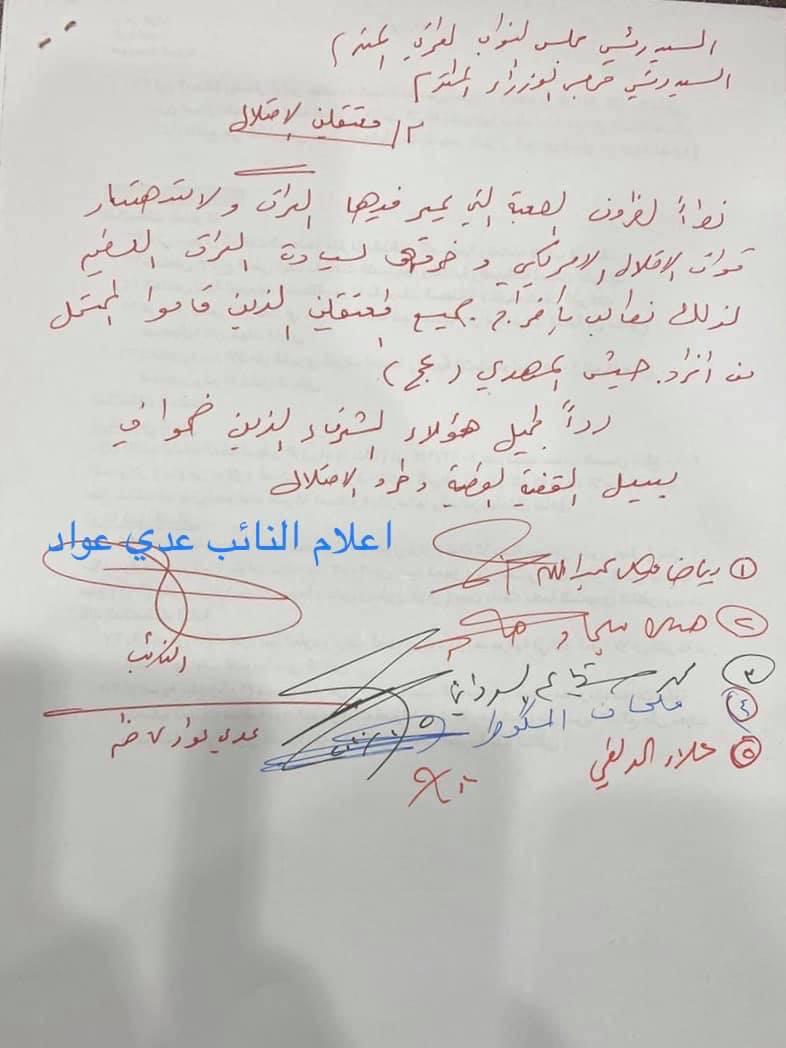 السيد رئيس مجلس النواب العراقي المحترم
السيد رئيس مجلس الوزراء المحترم
م/ معتقلين الاحتلال
نظراً للظروف الصعبة التي يمر فيها العراق ولاستهتار
قوات الاحتلال الامريكي وخرقهم لسيادة العراق العظيم
لذلك نطالب بإفراج جميع المعتقلين الذين قاوموا المحتل
من افراد جيش المهدي (عج).
رداً لجميل هؤلاء الشرفاء الذين ضحوا في
سبيل القضية الوطنية وطرد الاحتلال
اعلام النائب عدي عواد
١ رياض عبدالله
٢
النائب
٣ السوداني
٤ فلحان
٥ علاء الدلفي
عدي عواد كاظم